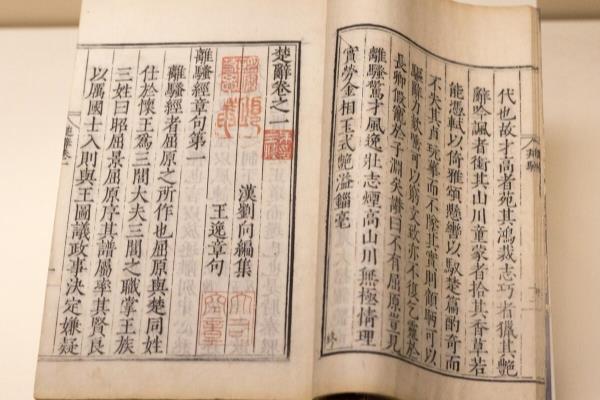 代也故才高者苑其鴻裁志巧者獵其艷
辭吟諷者銜其山川童蒙者拾其香草若
能憑軾以倚雅頌懸轡以馭楚篇酌奇而
不失其真玩華而不墜其實則顧盼可以
驅辭力欬唾可以窮文致亦不復乞靈於
長卿假寵於子淵矣讚曰不有屈原豈見
離騷驚才風逸壯志煙高山川無極情理
實勞金相玉式艷溢錙毫
楚辭卷之一
漢劉向編集
王逸章句
離騷經章句第一
離騷經者屈原之所作也屈原與楚同姓
仕於懷王為三閭大夫三閭之職掌王族
三姓曰昭屈景屈原序其譜屬率其賢良
以厲國士入則與王圖議政事決定嫌疑